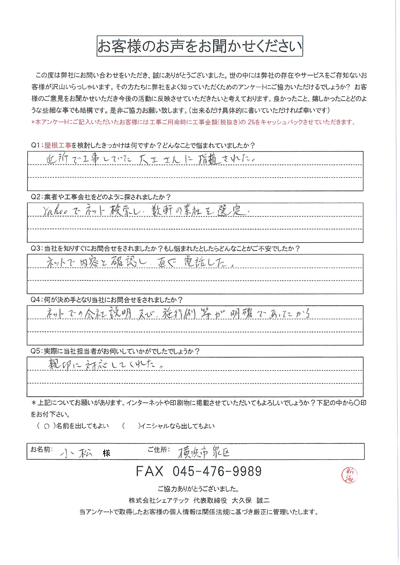 お客様のお声をお聞かせください
この度は弊社にお問い合わせをいただき、誠にありがとうございました。世の中には弊社の存在やサービスをご存知ないお
客様が沢山いらっしゃいます。その方たちに弊社をよく知っていただくためのアンケートにご協力いただけるでしょうか? お客
様のご意見をお聞かせいただき今後の活動に反映させていただきたいと考えております。良かったこと、嬉しかったことどのよ
うな些細な事でも結構です。是非ご協力お願い致します。(出来るだけ具体的に書いていただければ幸いです)
*本アンケートにご記入いただいたお客様には工事ご用命時に工事金額(税抜き)の2%をキャッシュバックさせていただきます。
Q1:屋根工事を検討したきっかけは何ですか?どんなことで悩まれていましたか?
近所で工事していた大工さんに指摘された。
Q2:業者や工事会社をどのように探されましたか?
Yahooでネット検索し、数軒の業社を選定.
Q3:当社を知りすぐにお問合せをされましたか?もし悩まれたとしたらどんなことがご不安でしたか?
ネットで内容を確認し、直ぐ電話した。
Q4:何が決め手となり当社にお問合せをされましたか?
ネットでの会社説明及び、施行例等が明確であったから
Q5:実際に当社担当者がお伺いしていかがでしたでしょうか?
親切に対応してくれた。
*上記についてお願いがあります。インターネットや印刷物に掲載させていただいてもよろしいでしょうか?下記の中から〇印
をお付下さい。
(〇)名前を出してもよい ( )イニシャルなら出してもよい
お名前: 小松 様 ご住所: 横浜市 泉区
FAX 045-476-9989
ご協力ありがとうございました。
株式会社シェアテック 代表取締役 大久保 誠二
当アンケートで取得したお客様の個人情報は関係法規に基づき厳正に管理いたします。